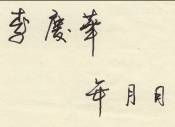 李慶華
年月日